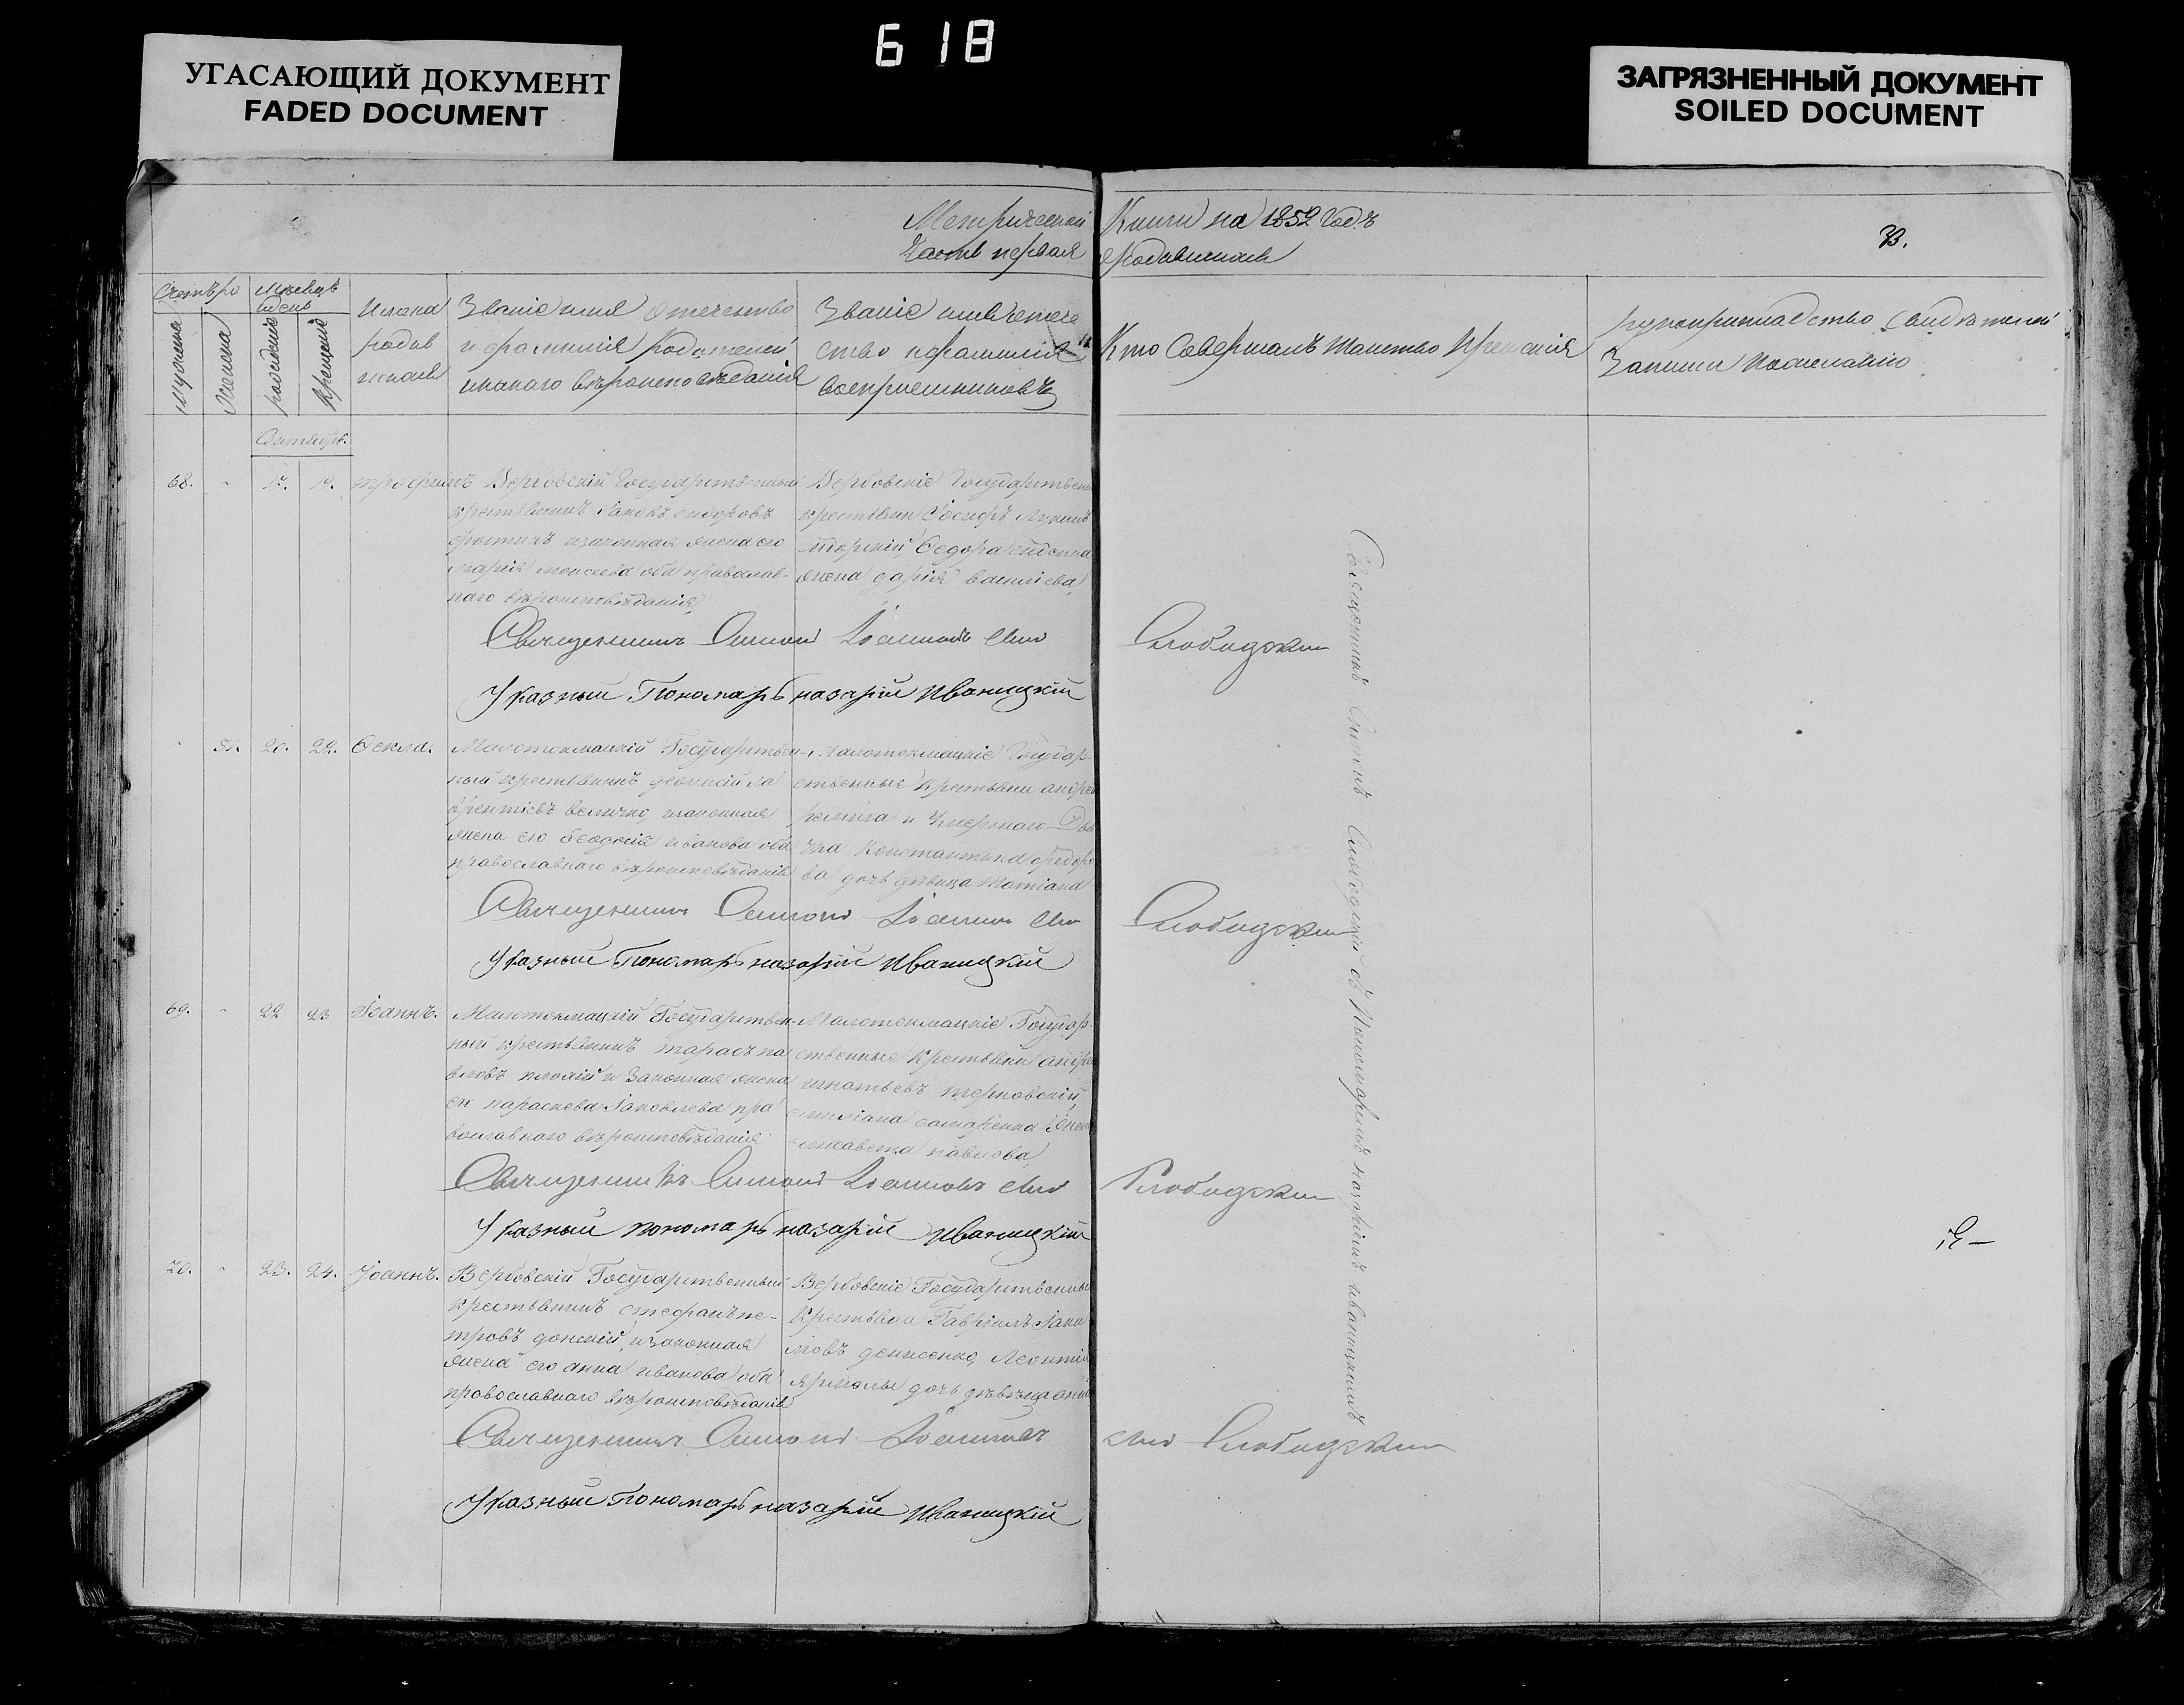 618
УГАСАЮЩИЙ ДОКУМЕНТ
FADED DOCUMENT
ЗАГРЯЗНЕННЫЙ ДОКУМЕНТ
SOILED DOCUMENT
Метрической Книги на 1852 Годъ
Часть первая о родившихся
Месяцъ
и день
Имена
родив
шихся
Званіе имя отечество
и фамилія Родителей
и какого вѣроисповѣданія
Званіе имя отече
ство и фамилія
воспріемниковъ
Кто Совершалъ таинство Крещенія
рукоприкладство Свидѣтелей
Записи по желанію
рожденія
крещенія
68. 17. 17. трофимъ
Вербовскій Государственный
крестьянинъ Іаковъ сидоровъ
и законная жена его
марія моисеева оба православ-
наго вѣроисповѣданія
Вербовскіе Государствен
крестьяни Іосифъ
Федора
жена дарія васильева
Священникъ Симеонъ Іоанновъ Слободскій
Указный Пономарь назарій Иваницкій
51. 20. 22. Фекла.
Малотокмацкій Государствен-
ный крестьянинъ діонисій ла
врентіевъ величко, и законная
жена его Феодосія иванова оба
православнаго вѣроисповѣданія
Малотокмацкіе Государ-
ственные Крестьяни андрей
Константина федоро
ва дочь дѣвица татіана
Священникъ Симеонъ Іоанновъ Слободскій
Указный Пономарь назарій Иваницкій
69. 22 23 Іоаннъ.
Малотокмацкій Государствен-
ный крестьянинъ тарасъ па
вловъ плохій и Законная жена
его параскева Іаковлева пра
вославнаго вѣроисповѣданія
Малотокмацкіе Государ-
ственные Крестьяни андрей
игнатьевъ терновскій,
емиліана самаренка жена
елисавета павлова
Священникъ Симеонъ Іоанновъ Слободскій
Указный пономарь назарій Иваницкій
70. 23. 24. Іоаннъ.
Вербовскій Государственный
крестьянинъ стефанъ пе-
тровъ донскій, и законная
жена его анна иванова оба
православнаго вѣроисповѣданія
Вербовскіе Государственные
Крестьяни Гавріилъ Іаки
мовъ денисенко, Леонтія
ярмолы дочь дѣвица
Священникъ Симеонъ Іоанновъ Слободскій
Указный Пономарь назарій Иваницкій
Священникъ Слободскій съ Пономаремъ назаріемъ иваницкимъ